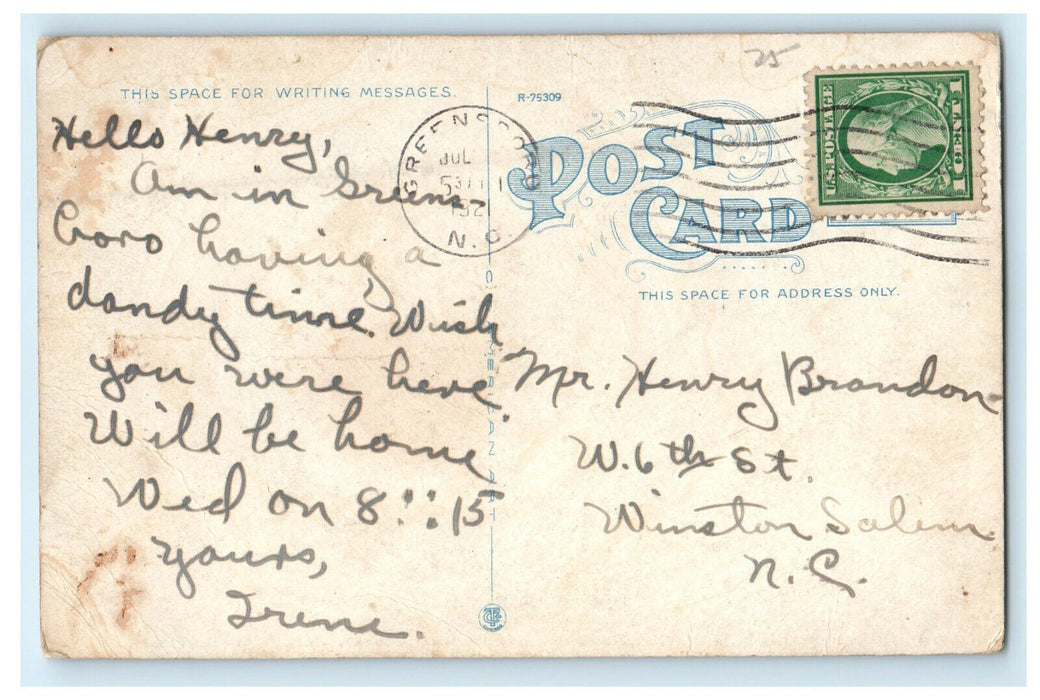 THIS SPACE FOR WRITING MESSAGES.
Hello Henry,
Am in Greens-
boro having a
dandy time. Wish
you were here.
Will be home
Wed on 8:15
yours,
Irene.
R-75309
25
GREENSBORO
JUL
5
192
N.C.
POST
CARD
U.S. POSTAGE
1 CENT 1
THIS SPACE FOR ADDRESS ONLY.
Mr. Henry Brandon
W. 6th St.
Winston Salem
N.C.